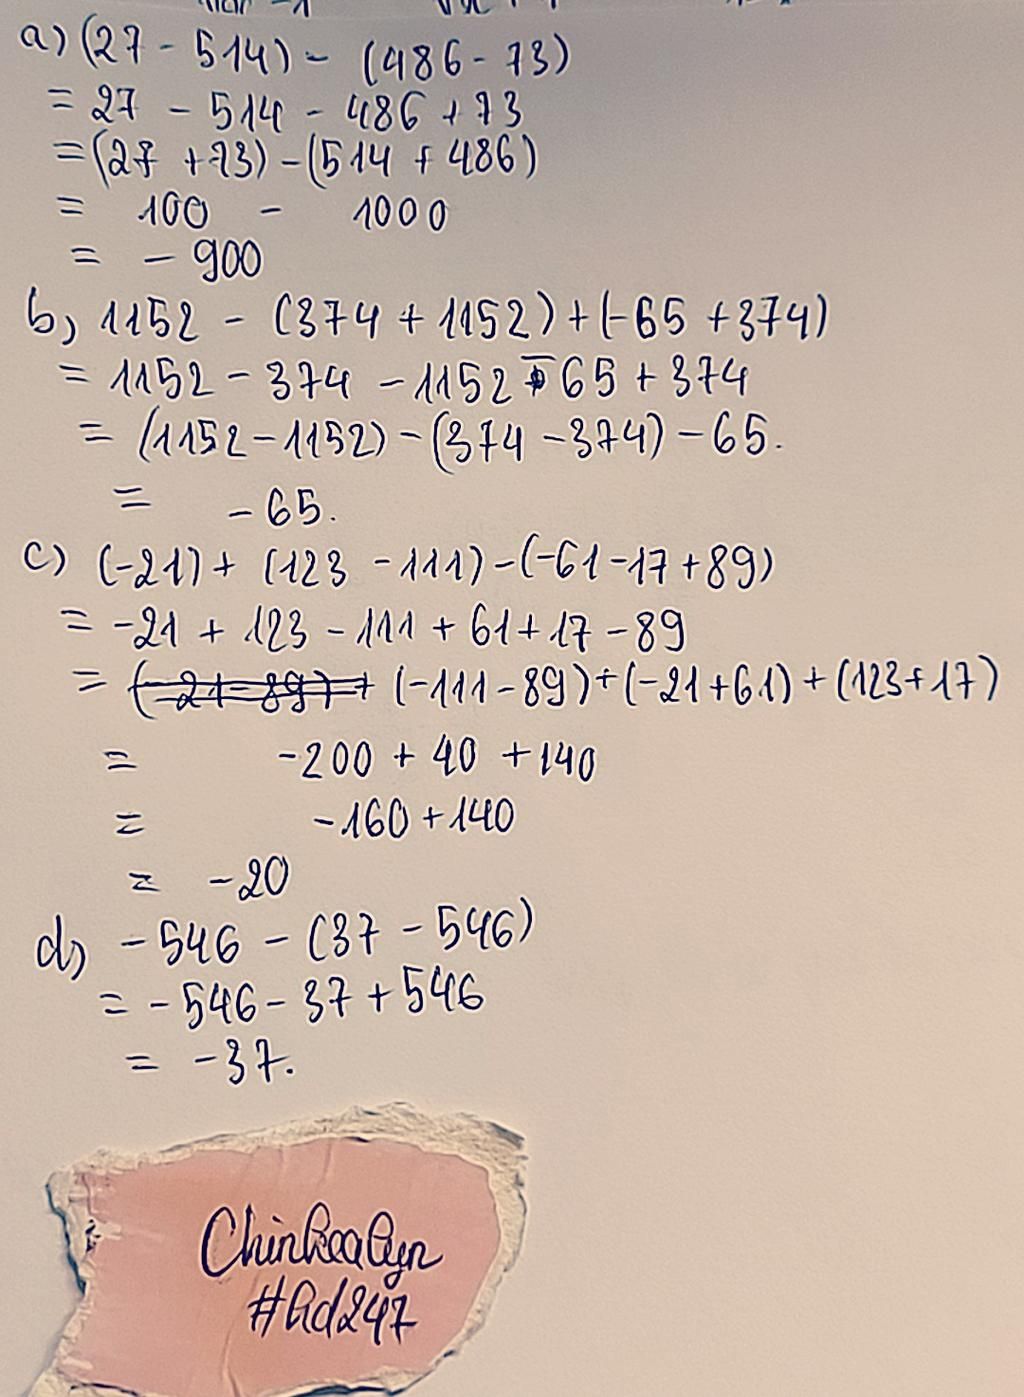 a) (27 - 514) - (486 - 73)
= 27 - 514 - 486 + 73
= (27 + 73) - (514 + 486)
= 100 - 1000
= - 900
b, 1152 - (374 + 1152) + (-65 + 374)
= 1152 - 374 - 1152 - 65 + 374
= (1152 - 1152) - (374 - 374) - 65.
= - 65.
c) (-21) + (123 - 111) - (-61 - 17 + 89)
= -21 + 123 - 111 + 61 + 17 - 89
= (-111 - 89) + (-21 + 61) + (123 + 17)
= -200 + 40 + 140
= -160 + 140
= -20
d, - 546 - (37 - 546)
= - 546 - 37 + 546
= -37.
#Ad247